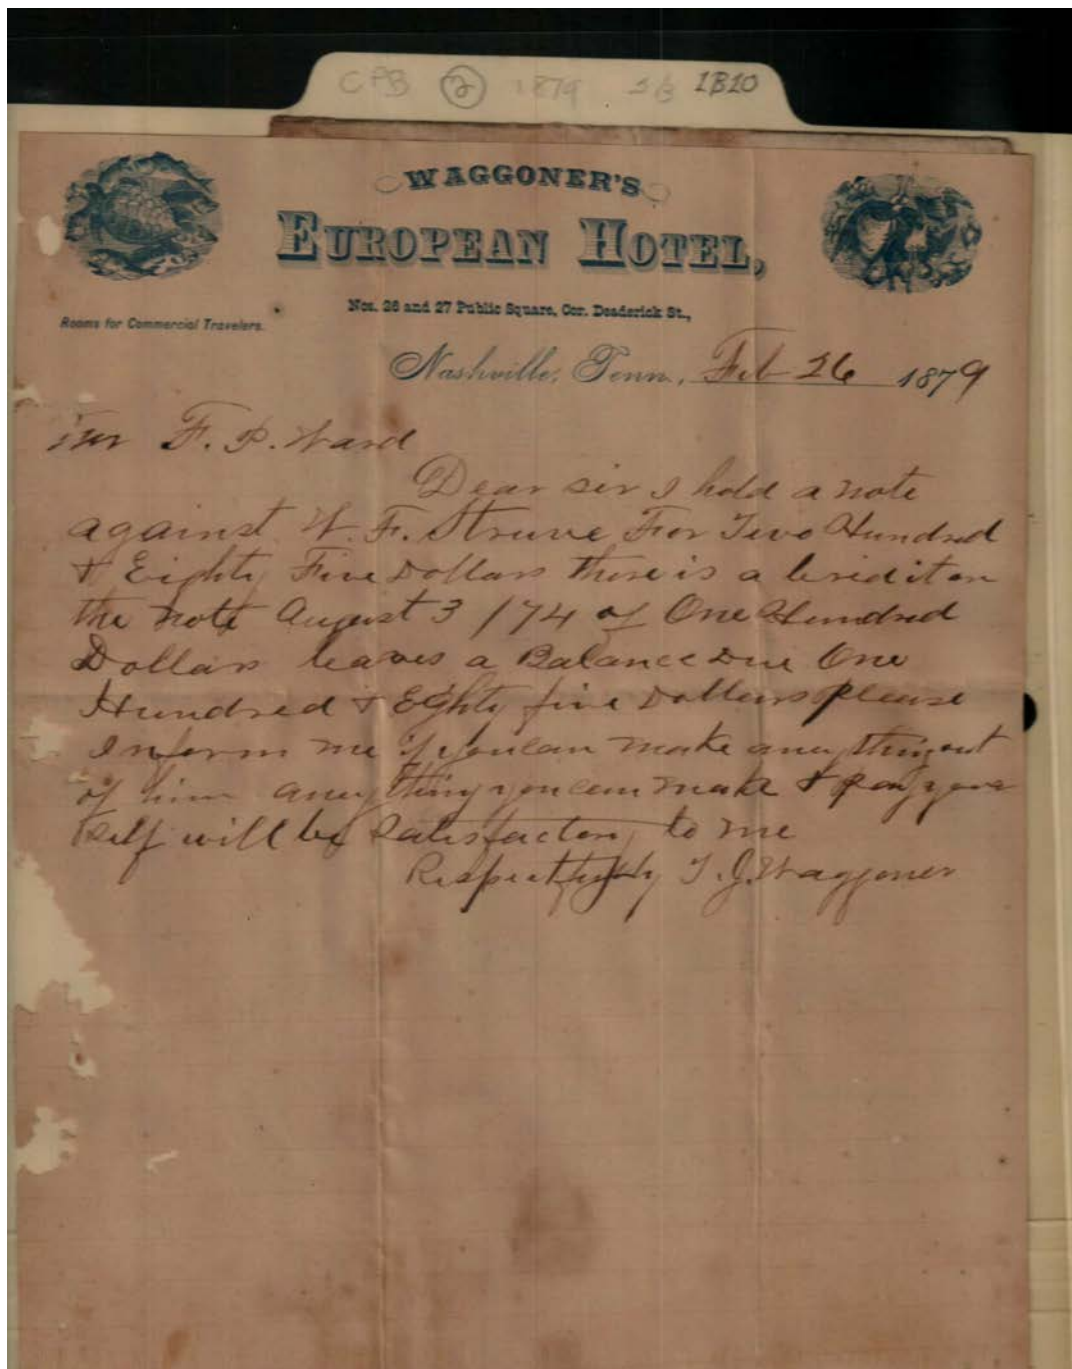 CPB 2 1879 1B10
WAGGONER'S
EUROPEAN HOTEL,
Nos. 26 and 27 Public Square, Cor. Deaderick St.,
Rooms for Commercial Travelers.
Nashville, Tenn., Feb 26 1879
Mr F. P. Ward
Dear sir I hold a note
against W. F. Struve For Two Hundred
& Eighty Five Dollars there is a Credit on
the note August 3 /74 of One Hundred
Dollars leaves a Balance Due One
Hundred & Eghty five Dollars please
Inform me if you can make any thing out
of him any thing you can make & pay your
self will be Satisfactory to me
Respectfully T. J. Waggoner